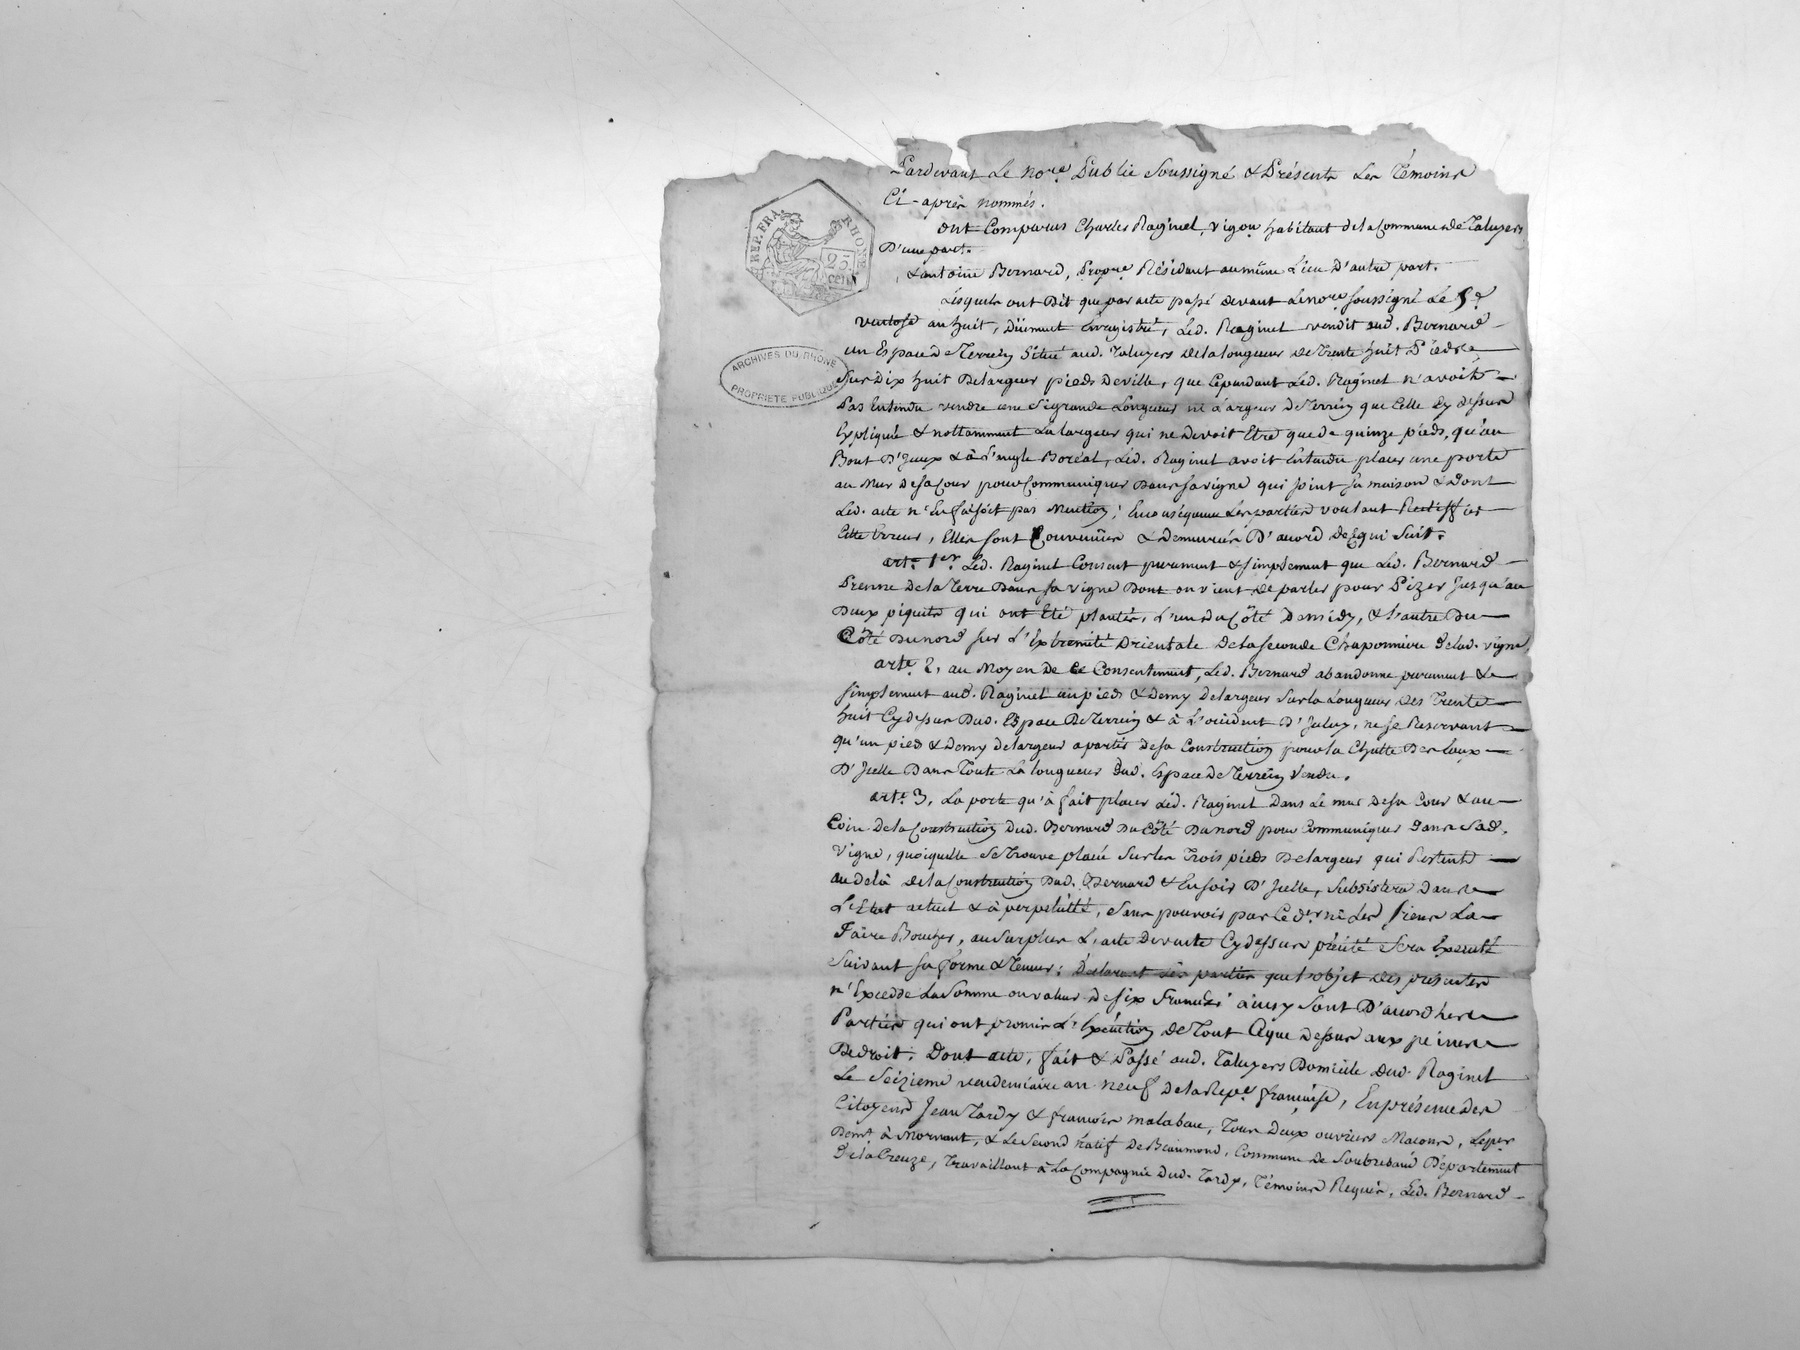 Pardevant Le no.re Public Soussigné & Présents Les Témoins
Ci-après nommés.
ont Comparus Charles Raginel, Vigon habitant de la Commune de Taluyers
D'une part.
& antoine Bernard, Propre. Résidant au même Lieu D'autre part.
Lesquels ont Dit que par acte passé devant Le no.re soussigné Le 5.e
ventose an huit, Düement Enregistré, Led. Raginel vendit aud. Bernard
un Espace de Terrein Situé aud. Taluyers de la longueur de Trente huit Pieds
Sur Dix huit De largeur pieds de ville, que Cependant Led. Raginel n'avoit
Pas Entendu vendre une si grande Longueur ni Largeur de Terrein que Celle Cy dessus
Expliquée & nottamment La largeur qui ne devoit Etre que de quinze pieds, qu'au
Bout D'Iceux & à L'angle Boréal, Led. Raginel avoit Entendu placer une porte
au Mur de sa Cour pour Communiquer Dans sa vigne qui joint sa maison & dont
Led. acte n'En faisoit pas Mention; En conséquence Les parties voulant Rectiffier
Cette Erreur, Elles sont Convenües & Demeurées D'acord de Cequi Suit.
art.e 1.er Led. Raginel Consent purement & simplement que Led. Bernard
Prenne De la Terre Dans sa vigne Dont on vient de parler pour Pizer jusqu'au
Deux piquets qui ont Eté plantés, L'un du Côté Du midy, & L'autre Du
Côté Du nord sur L'Extremité Orientale De la seconde Chaponnière de lad. vigne.
art.e 2. au Moyen de Ce Consentement, Led. Bernard abandonne purement &
simplement aud. Raginel un pied & Demy De largeur Sur la Longueur Des Trente
huit Cy dessus Dud. Espace De Terrein & à L'occident D'Iceluy, ne se Reservant
qu'un pied & Demy de largeur a partir de sa Construction pour la Chutte Des Eaux
D'Icelle Dans Toute La longueur dud. Espace de Terrein Vendu.
art.e 3. La porte qu'à fait placer Led. Raginel Dans Le mur De sa Cour & au
Coin De la Construction Dud. Bernard Du Côté Du nord pour Communiquer dans Sad.
Vigne, quoiquelle se Trouve placée Sur les Trois pieds De largeur qui Restent
au delà de la Construction Dud. Bernard & En soir D'Icelle, subsistera dans
L'Etat actuel & à perpétuité, sans pouvoir par Ce d.er ni Les siens La
Faire Boucher, au Surplus L'acte De vente Cy dessus précité Sera Exécuté
Suivant sa forme & Teneur; Déclarant Les parties que L'objet Des présentes
n'Excedde La Somme ou valeur de six Francs; ainsy Sont D'acord les
Parties qui ont promis L'Exécution de Tout Ceque Dessus aux peines
De droit. Dont acte, fait & Passé aud. Taluyers Domicile Dud. Raginel
Le Seizieme vendemiaire an neuf De la Rep.e française, En présence Des
Citoyens Jean Tardy & francois malabaue, Tous deux ouvriers Macons, Le p.er
Dem.t à Mornant, & Le Second Natif De Beaumond, Commune De Soubrebaud Département
De la Creuze, Travaillant à La Compagnie Dud. Tardy, Témoins Requis, Led. Bernard
REP. FRA.
RHONE
25
cent.
ARCHIVES DU RHONE
PROPRIETE PUBLIQUE